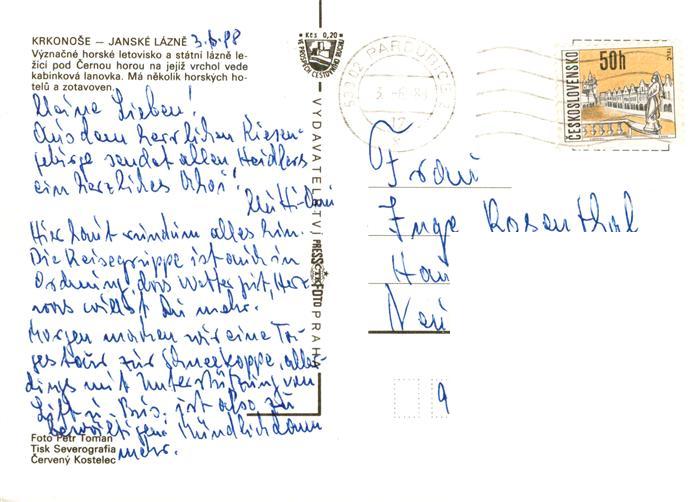 KRKONOŠE – JANSKÉ LÁZNĚ 3.6.88
Význačné horské letovisko a státní lázně le-
žící pod Černou horou na jejíž vrchol vede
kabinková lanovka. Má několik horských ho-
telů a zotavoven.
Meine Lieben!
Aus dem herrlichen Riesen-
gebirge sendet allen Heidlers
ein herzliches Ahoi!
Hier haut rundum alles hin.
Die Reisegruppe ist auch in
Ordnung, das Wetter gut, Herz
was willst Du mehr.
Morgen machen wir eine Ta-
gestour zur Schneekoppe, aller-
dings mit Unterstützung von
Lift u. Bus, ist also zu
bewältigen. Mündlich dann
mehr.
Foto Petr Toman
Tisk Severografia
Červený Kostelec
Kčs 0,20
VE PROSPĚCH CESTOVNÍHO RUCHU
VYDAVATELSTVÍ PRESSFOTO PRAHA
PARDUBICE 2
ČESKOSLOVENSKO
50h
Frau
Inge Rosenthal